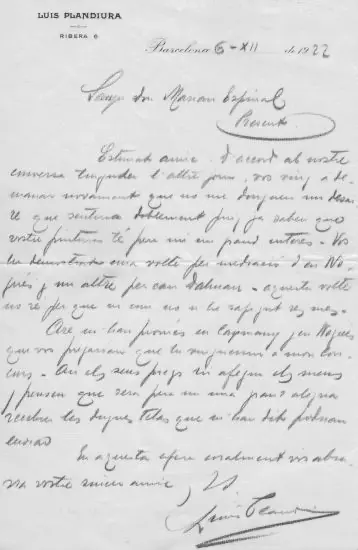 LUIS PLANDIURA
RIBERA 6
Barcelona 6-XII de 1922
Senyor Don Marian Espinal
Present
Estimat amic: D'acord ab nostre
conversa tinguda l'altre jorn, vos vinc a de-
manar novament que no me dongueu un desai-
re que sentiria doblement puig ja sabeu que
vostre pintura té pera mi un grand interes. Vos
ho demostrat una volta per mediació d'en No-
gués y un altre per can Dalmau - aquesta volta
no se per que
Are m'han promes en Capmany y en Nogués
que vos pregarian que
curs. An els seus pregs m'afegin els meus
y penseu que sera pera mi una gran alegria
rebrer les dugues telas que m'han dit podrian
enviar
En aquesta espera coralment vos abra-
sa vostre amic
Luis Plandiura